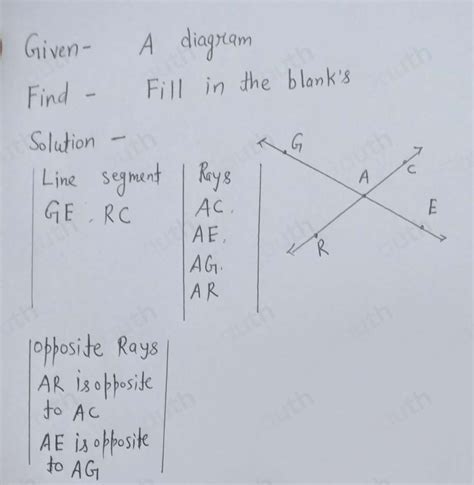 Given - A diagram
Find - Fill in the blank's
Solution -
Line segment
GE, RC
Rays
AC.
AE.
AG.
AR
G
A
C
E
R
opposite Rays
AR is opposite
to AC
AE is opposite
to AG